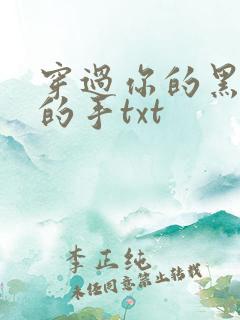 穿过你的黑
的手txt
李正纯
未经同意禁止转载